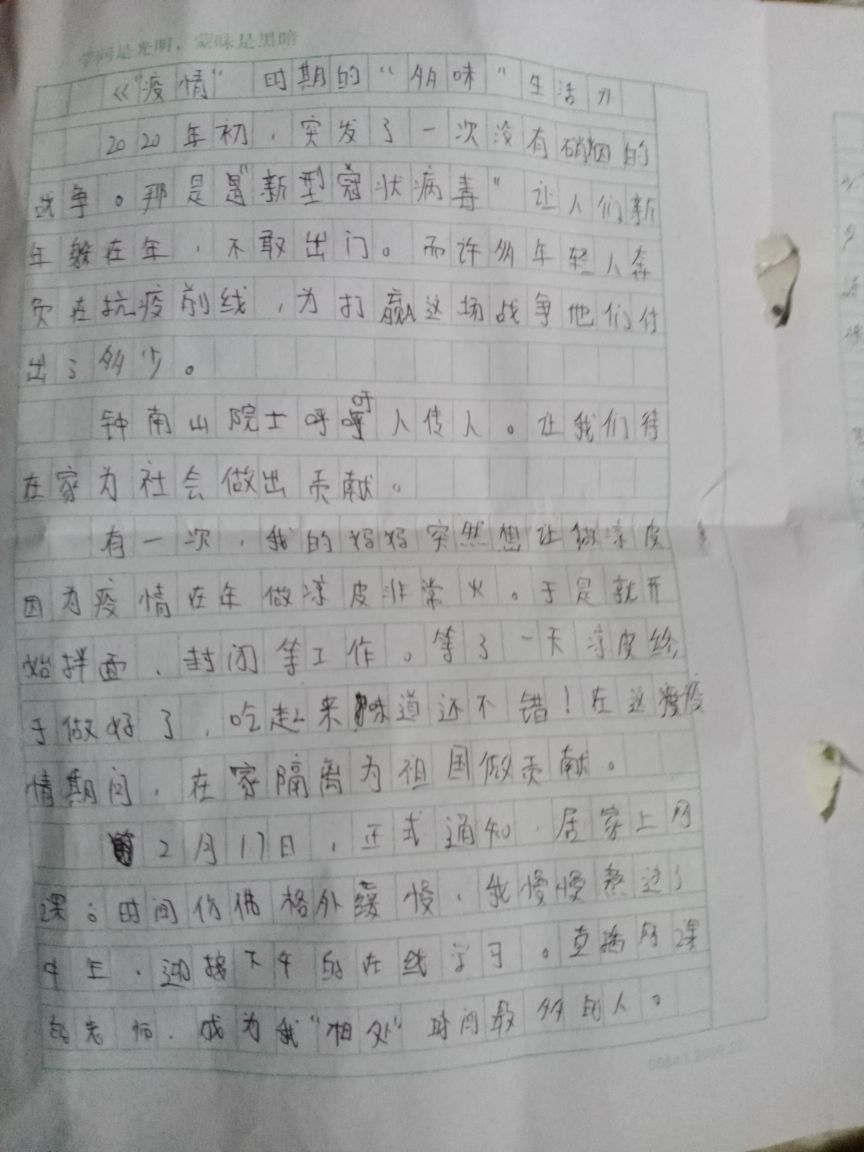 学问是光明，蒙昧是黑暗
《“疫情”时期的“多味”生活》
2020年初，突发了一次没有硝烟的
战争。那是“新型冠状病毒”让人们新
年躲在年，不敢出门。而许多年轻人奔
负在抗疫前线，为打赢这场战争他们付
出了多少。
钟南山院士呼吁人传人。让我们待
在家为社会做出贡献。
有一次，我的妈妈突然想让做凉皮
因为疫情在年做凉皮非常火。于是就开
始拌面、封闭等工作。等了一天凉皮终
于做好了，吃起来味道还不错！在这疫
情期间，在家隔离为祖国做贡献。
2月17日，正式通知，居家上网
课。时间仿佛格外缓慢，我慢慢熬过了
中午，迎接下午的在线学习。直播网课
的老师，成为我“相处”时间最多的人。